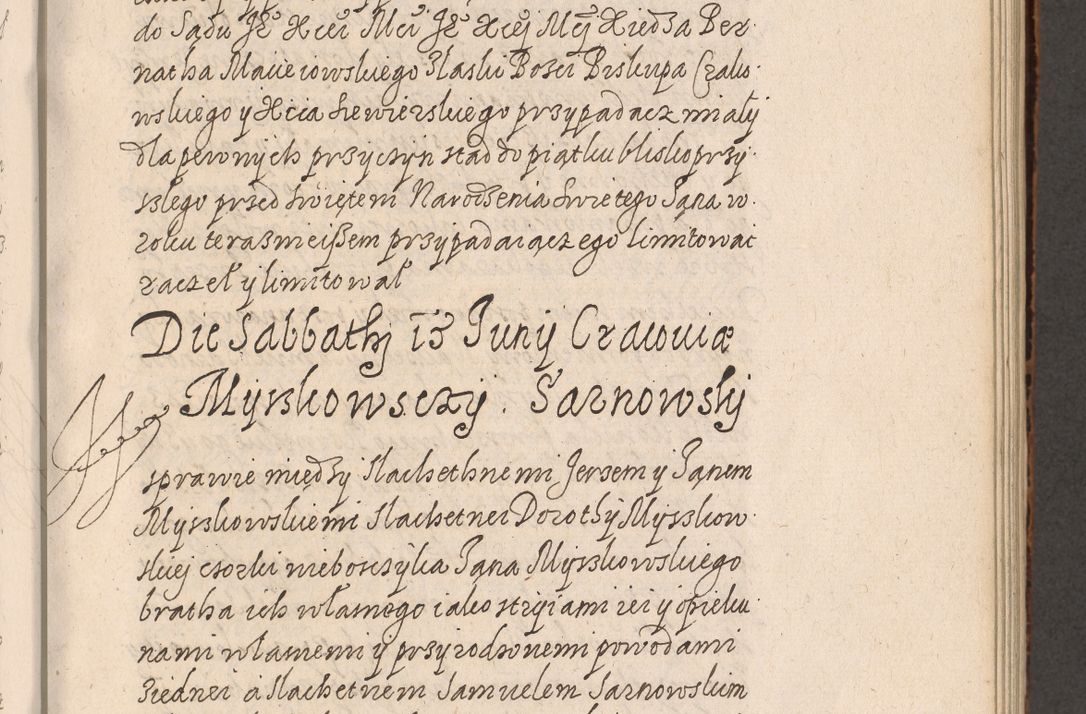 do Sądu Je° Xcei Mci Je° Xcej Mcj Xiedza Ber
natha Macieiowskiego Z laski Bozei Biskupa Crako
wskiego y Xcia Siewierskiego przypadacz miały
dla pewnych przyczyn stad do piątku blisko przy
szlego przed swiętem Narodzenia swietego Jąna w
roku terasnieiszem przypadaiącz ego limitowac
raczeł y limitowal
Die Sabbathj 15 Junij Cracouiæ
Myszkowsczy . Sarnowskj
W sprawie miedzy slachethnemi Jerzem y Janem
Myszkowskiemi slachetnei Dorothy Myszkow
skiej czorki nieboszczyka Jąna Myszkowskiego
bratha ich własnego iako stryiami iei y opieku
nami własnemi y przyrodzonemi powodami
z iednei a slachetnem Samuelem Sarnowskim